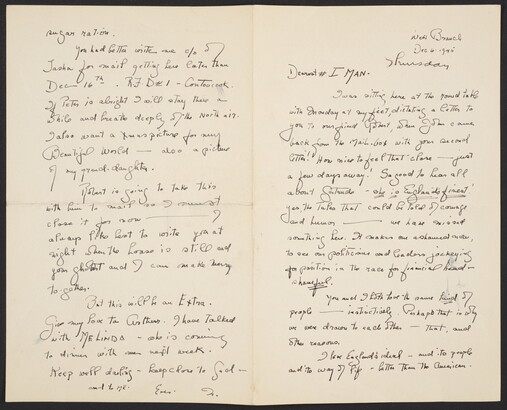 New Branch
Dec 6 1945
Thursday
Dearest I MAN.
I was sitting here at the round table
with Dromday at my feet, dictating a letter to
you to our friend when John came
back from the Mail-box with your second
letter! How nice to feel that close — just
a few days away! So good to hear all
about Gertrude - she is England's finest!
yes the tales that could be told of courage
and humor — we have missed
something here. It makes me ashamed now,
to see our politicians and leaders jockeying
for position in the race for financial
shameful.
You and I both love the same kind of
people — instinctively. Perhaps that is why
we were drawn to each other - that, and
other reasons.
I love England's ideal - and its people
and its way of life - better than the American.
sugar ration.
You had better write me c/o of
Tasha for mail getting here later than
Dec 16th. RFD #1 - Contoocook.
If Peter is alright I will stay there a
while and breathe deeply of the North air.
I also want a Xmas picture for my
Beautiful World — also a picture
of my grand-daughter.
Robert is going to take this
with him to mail so I must
close it for now —— I
always like best to write you at
night when the house is still and
your ghost and I can make merry
together.
But this will be an Extra.
Give my love to Carthew. I have talked
with MELINDA - she is coming
to dinner with me next week.
Keep well darling - keep close to God -
and to me.
Ever